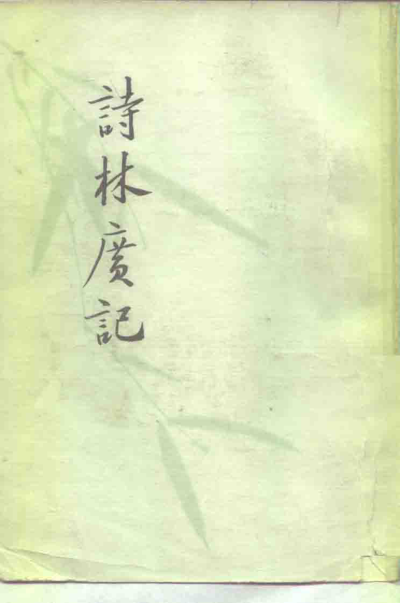 詩林廣記